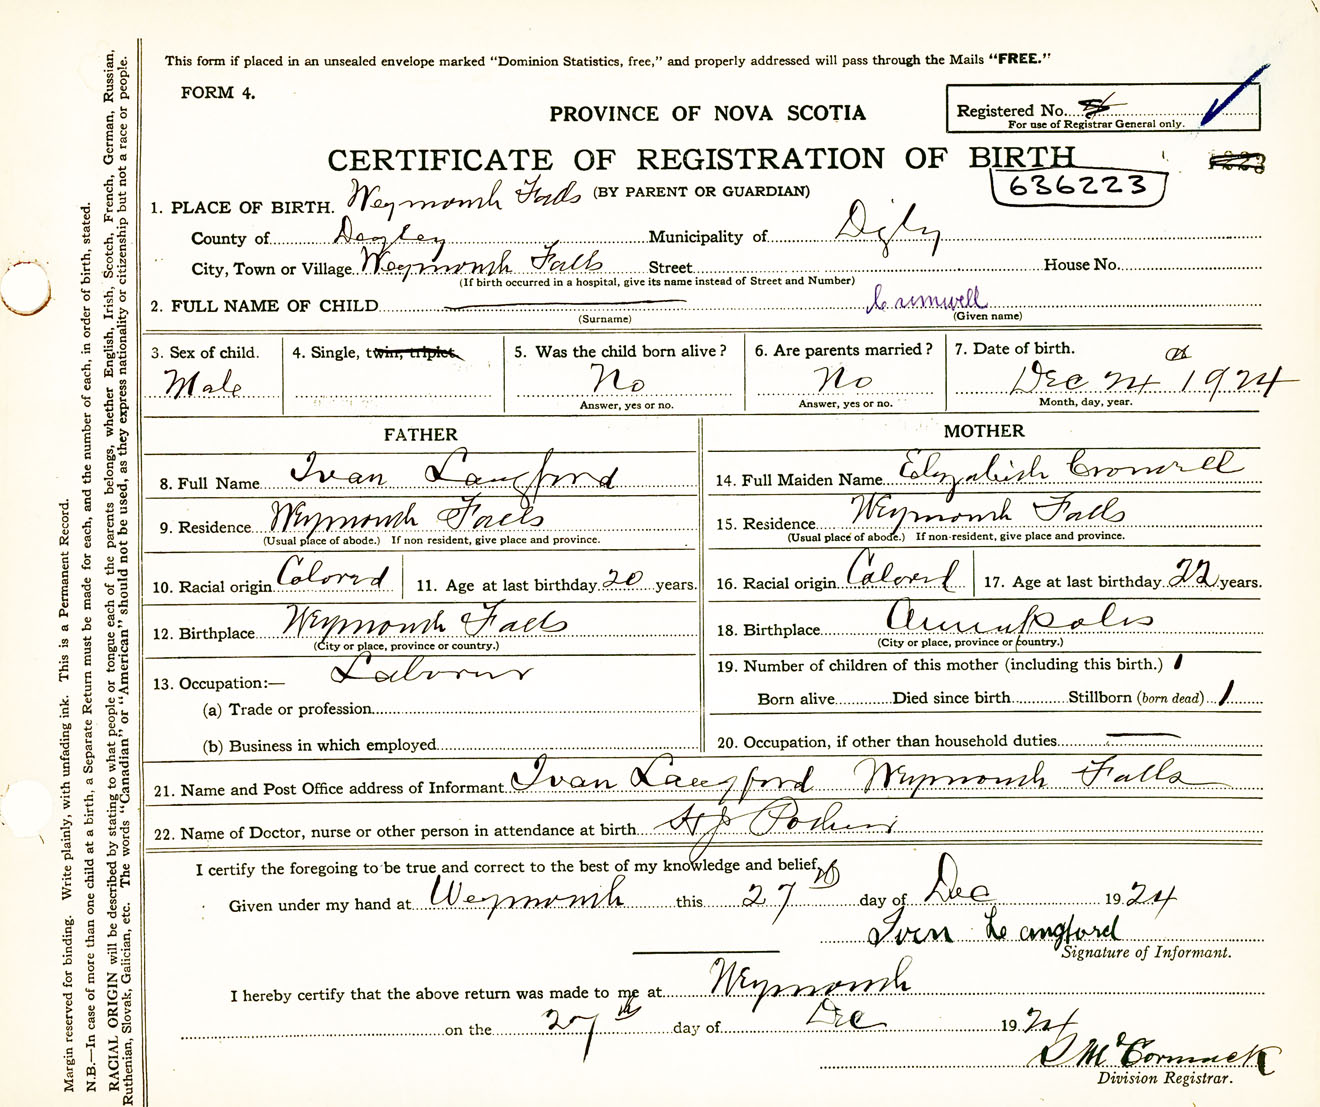 This form if placed in an unsealed envelope marked "Dominion Statistics, free," and properly addressed will pass through the Mails "FREE."
FORM 4.
PROVINCE OF NOVA SCOTIA
Registered No.
For use of Registrar General only.
CERTIFICATE OF REGISTRATION OF BIRTH
636223
(BY PARENT OR GUARDIAN)
1. PLACE OF BIRTH. Weymouth Falls
County of Degley Municipality of Digby
City, Town or Village Weymouth Falls Street House No.
(If birth occurred in a hospital, give its name instead of Street and Number)
2. FULL NAME OF CHILD Crumwell
(Surname) (Given name)
3. Sex of child. Male
4. Single, twin, triplet.
5. Was the child born alive? No
Answer, yes or no.
6. Are parents married? No
Answer, yes or no.
7. Date of birth. Dec 24th 1924
Month, day, year.
FATHER
8. Full Name Ivan Langford
9. Residence Weymouth Falls
(Usual place of abode.) If non resident, give place and province.
10. Racial origin Colored 11. Age at last birthday 20 years.
12. Birthplace Weymouth Falls
(City or place, province or country.)
13. Occupation:— Laborer
(a) Trade or profession
(b) Business in which employed
MOTHER
14. Full Maiden Name Elizabeth Cromwell
15. Residence Weymouth Falls
(Usual place of abode.) If non-resident, give place and province.
16. Racial origin Colored 17. Age at last birthday 22 years.
18. Birthplace Annapolis
(City or place, province or country.)
19. Number of children of this mother (including this birth.) 1
Born alive Died since birth Stillborn (born dead) 1
20. Occupation, if other than household duties
21. Name and Post Office address of Informant Ivan Langford Weymouth Falls
22. Name of Doctor, nurse or other person in attendance at birth H J Pothier
I certify the foregoing to be true and correct to the best of my knowledge and belief,
Given under my hand at Weymouth this 27th day of Dec 1924
Iven Langford
Signature of Informant.
I hereby certify that the above return was made to me at Weymouth
on the 27th day of Dec 1924
McCormack
Division Registrar.
Margin reserved for binding. Write plainly, with unfading ink. This is a Permanent Record.
N.B.—In case of more than one child at a birth, a Separate Return must be made for each, and the number of each, in order of birth, stated.
RACIAL ORIGIN will be described by stating to what people or tongue each of the parents belongs, whether English, Irish, Scotch, French, German, Russian,
Ruthenian, Slovak, Galician, etc. The words "Canadian" or "American" should not be used, as they express nationality or citizenship but not a race or people.